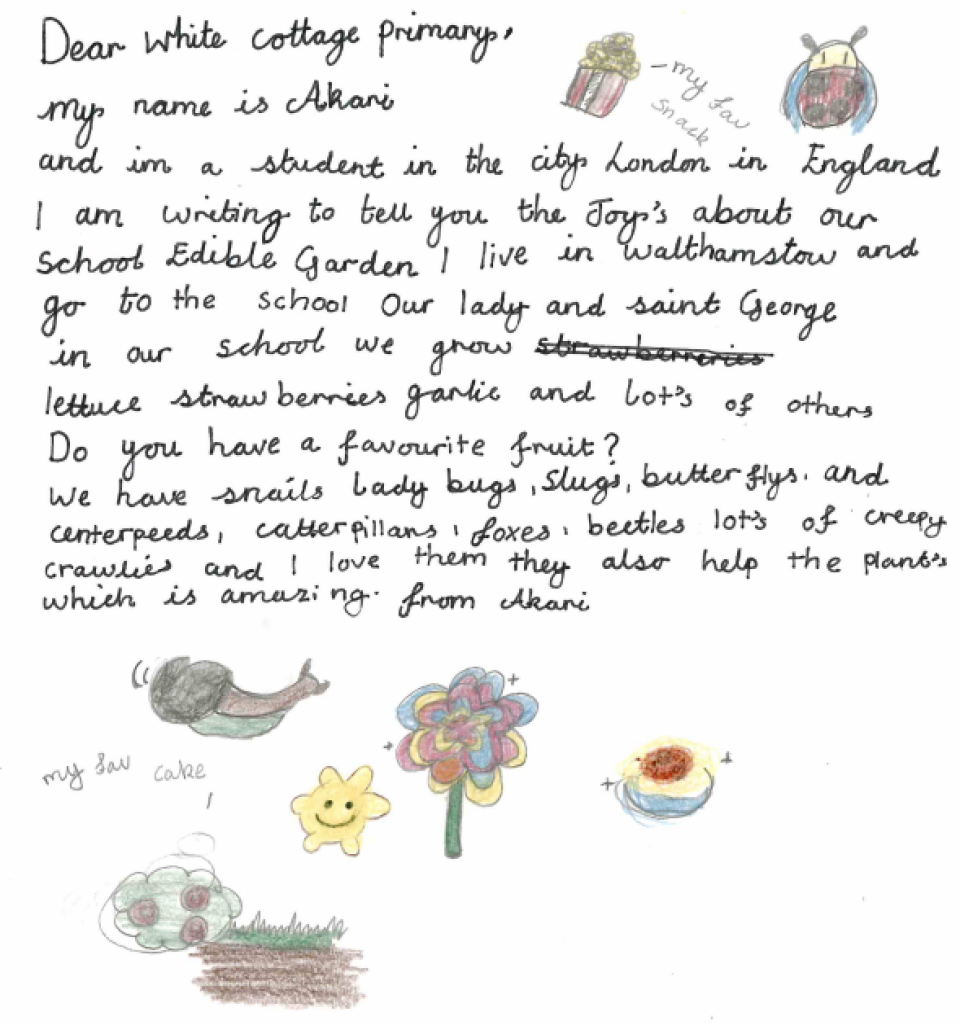 Dear White cottage primary,
my name is Akari
– my fav
snack
and im a student in the city London in England
I am writing to tell you the Joy's about our
School Edible Garden I live in Walthamstow and
go to the school Our lady and saint George
in our school we grow strawberreries
lettuce strawberries garlic and lot's of others
Do you have a favourite fruit?
We have snails Lady bugs, Slugs, butterflys. and
centerpeeds, catterpillars, foxes, beetles lot's of creepy
crawlies and I love them they also help the plant's
which is amazing. from Akari
my fav cake